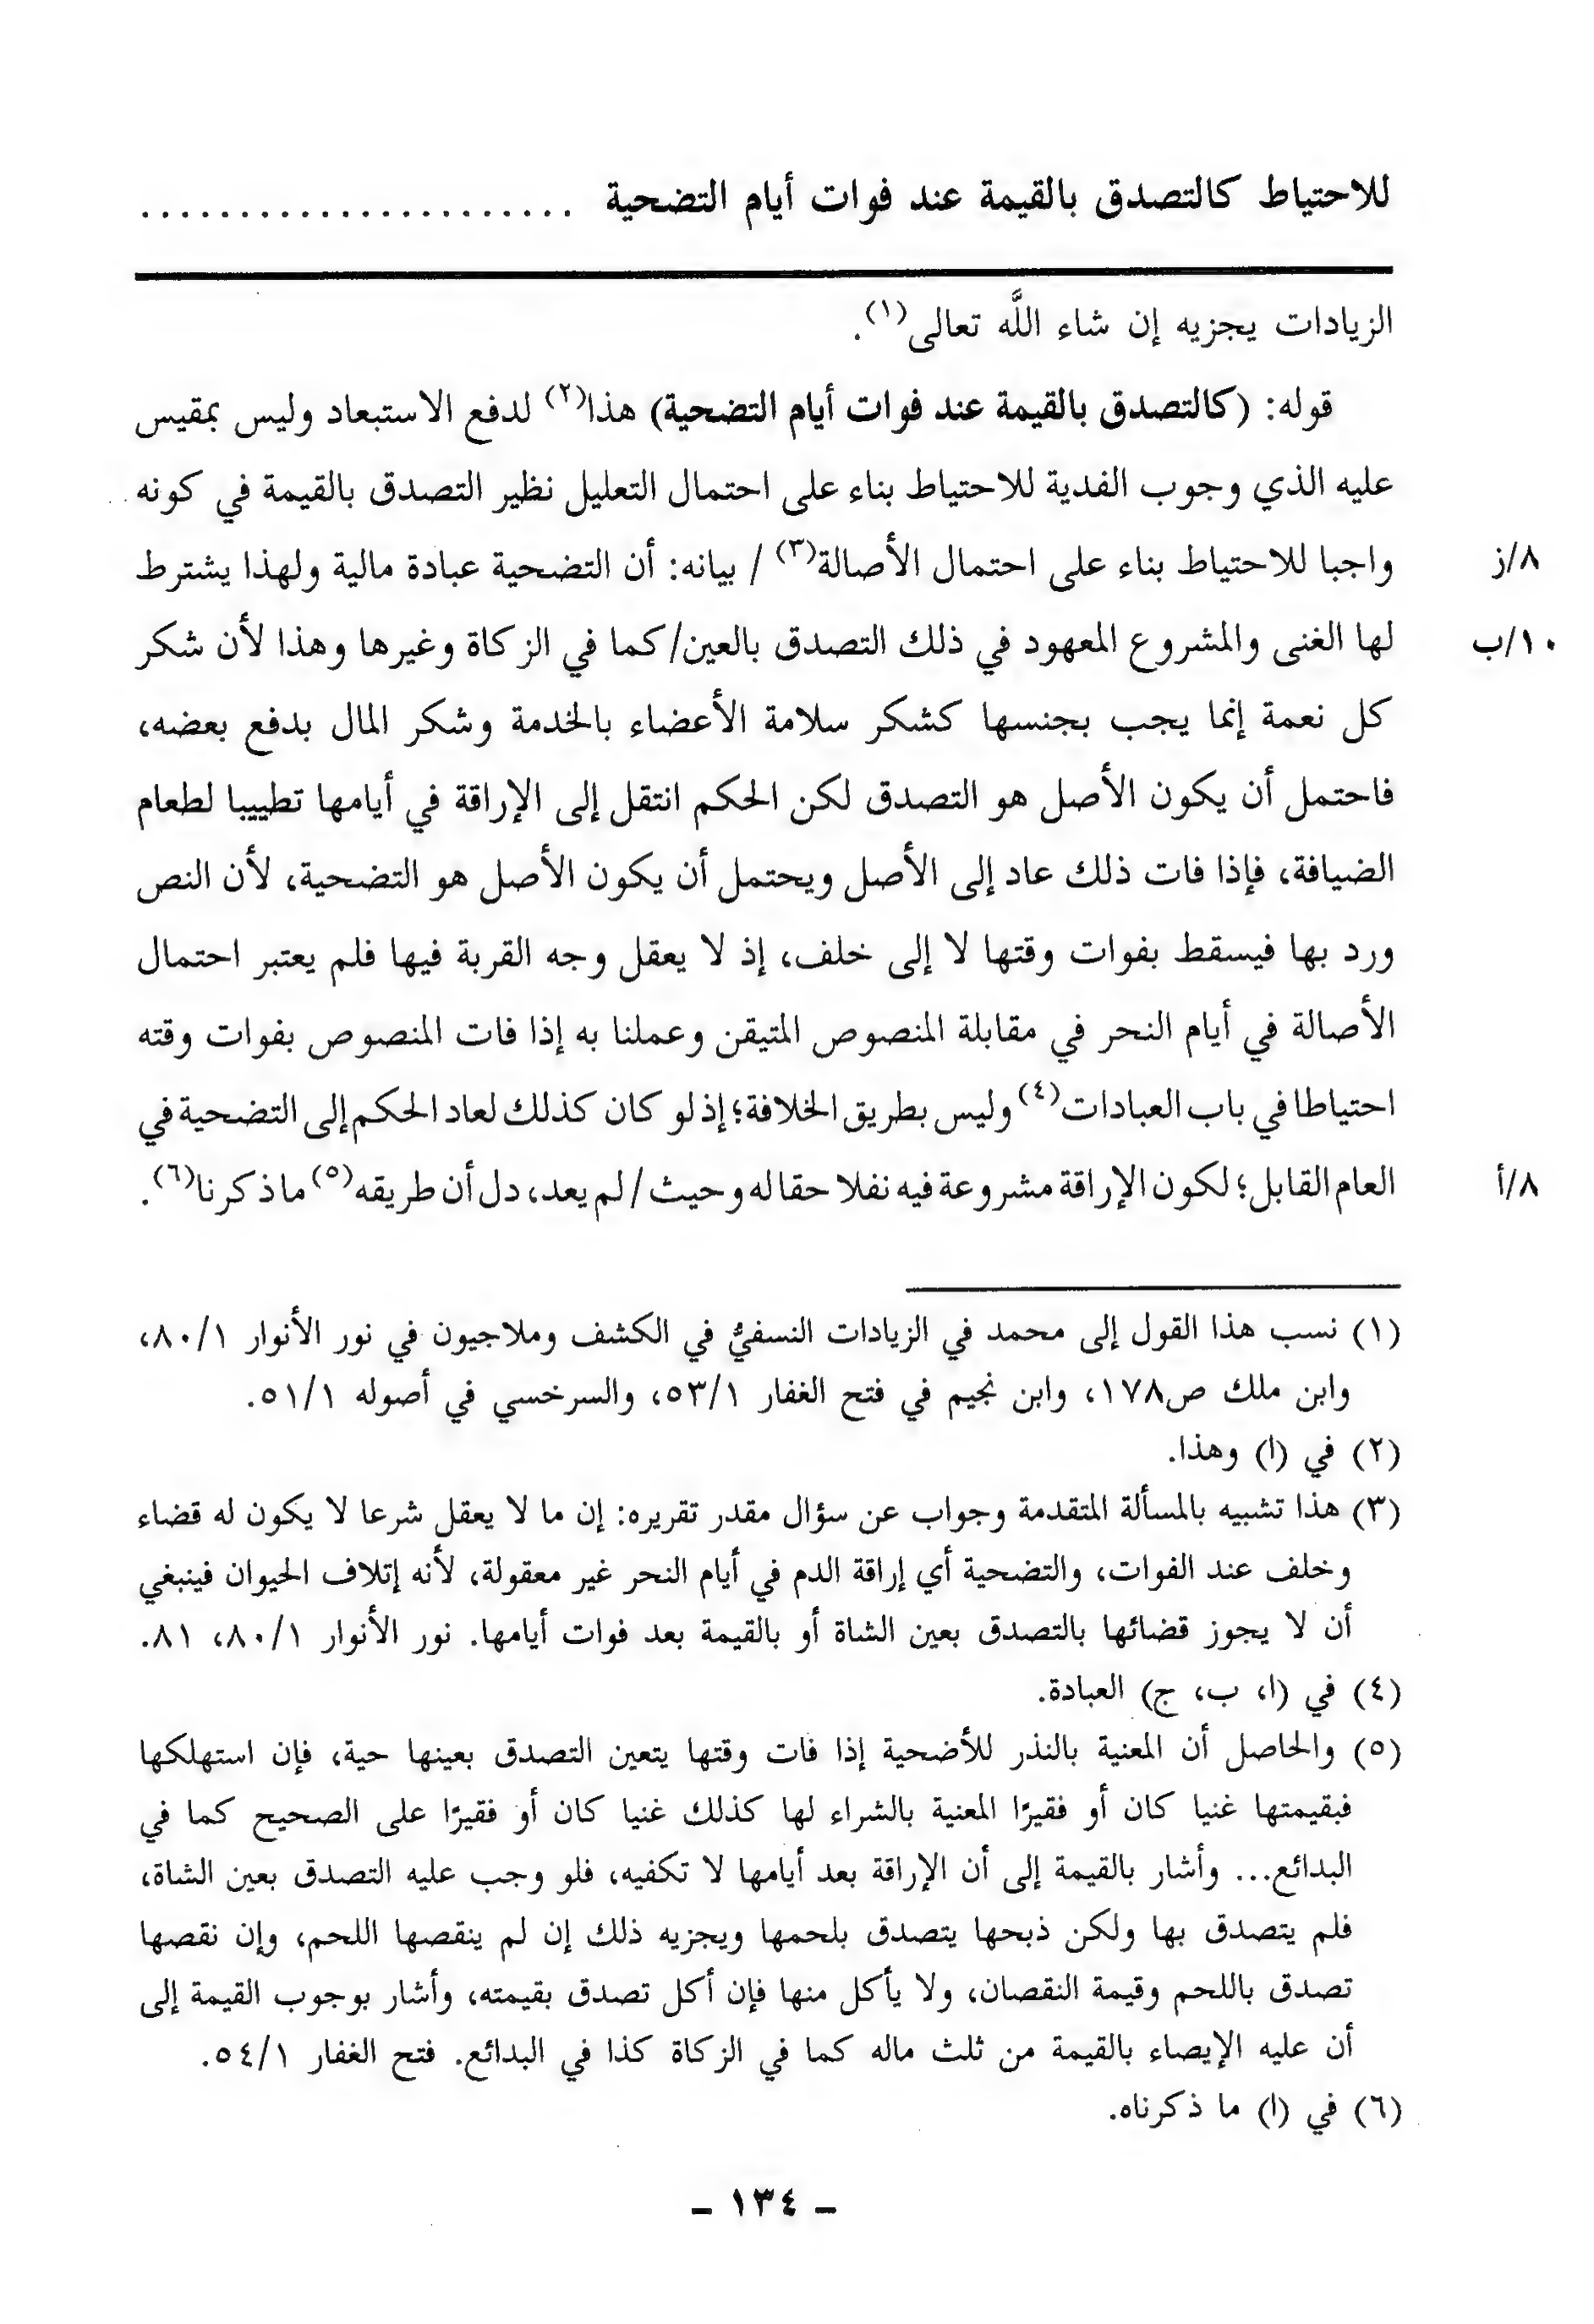 للاحتياط كالتصدق بالقيمة عند فوات أيام التضحية ......................
الزيادات يجزيه إن شاء اللَّه تعالى(١).
قوله: (كالتصدق بالقيمة عند فوات أيام التضحية) هذا(٢) لدفع الاستبعاد وليس بمقيس
عليه الذي وجوب الفدية للاحتياط بناء على احتمال التعليل نظير التصدق بالقيمة في كونه
واجبا للاحتياط بناء على احتمال الأصالة(٣) / بيانه: أن التضحية عبادة مالية ولهذا يشترط ٨/ز
لها الغنى والمشروع المعهود في ذلك التصدق بالعين/ كما في الزكاة وغيرها وهذا لأن شكر ١٠/ب
كل نعمة إنما يجب بجنسها كشكر سلامة الأعضاء بالخدمة وشكر المال بدفع بعضه،
فاحتمل أن يكون الأصل هو التصدق لكن الحكم انتقل إلى الإراقة في أيامها تطييبا لطعام
الضيافة، فإذا فات ذلك عاد إلى الأصل ويحتمل أن يكون الأصل هو التضحية، لأن النص
ورد بها فيسقط بفوات وقتها لا إلى خلف، إذ لا يعقل وجه القربة فيها فلم يعتبر احتمال
الأصالة في أيام النحر في مقابلة المنصوص المتيقن وعملنا به إذا فات المنصوص بفوات وقته
احتياطا في باب العبادات(٤) وليس بطريق الخلافة؛ إذ لو كان كذلك لعاد الحكم إلى التضحية في
العام القابل؛ لكون الإراقة مشروعة فيه نفلا حقا له وحيث / لم يعد، دل أن طريقه(٥) ما ذكرنا(٦). ٨/أ
(١) نسب هذا القول إلى محمد في الزيادات النسفيُّ في الكشف وملاجيون في نور الأنوار ٨٠/١،
وابن ملك ص١٧٨، وابن نجيم في فتح الغفار ٥٣/١، والسرخسي في أصوله ٥١/١.
(٢) في (ا) وهذا.
(٣) هذا تشبيه بالمسألة المتقدمة وجواب عن سؤال مقدر تقريره: إن ما لا يعقل شرعا لا يكون له قضاء
وخلف عند الفوات، والتضحية أي إراقة الدم في أيام النحر غير معقولة، لأنه إتلاف الحيوان فينبغي
أن لا يجوز قضائها بالتصدق بعين الشاة أو بالقيمة بعد فوات أيامها. نور الأنوار ٨٠/١، ٨١.
(٤) في (ا، ب، ج) العبادة.
(٥) والحاصل أن المعنية بالنذر للأضحية إذا فات وقتها يتعين التصدق بعينها حية، فإن استهلكها
فبقيمتها غنيا كان أو فقيرًا المعنية بالشراء لها كذلك غنيا كان أو فقيرًا على الصحيح كما في
البدائع... وأشار بالقيمة إلى أن الإراقة بعد أيامها لا تكفيه، فلو وجب عليه التصدق بعين الشاة،
فلم يتصدق بها ولكن ذبحها يتصدق بلحمها ويجزيه ذلك إن لم ينقصها اللحم، وإن نقصها
تصدق باللحم وقيمة النقصان، ولا يأكل منها فإن أكل تصدق بقيمته، وأشار بوجوب القيمة إلى
أن عليه الإيصاء بالقيمة من ثلث ماله كما في الزكاة كذا في البدائع. فتح الغفار ٥٤/١.
(٦) في (ا) ما ذكرناه.
- ١٣٤ -